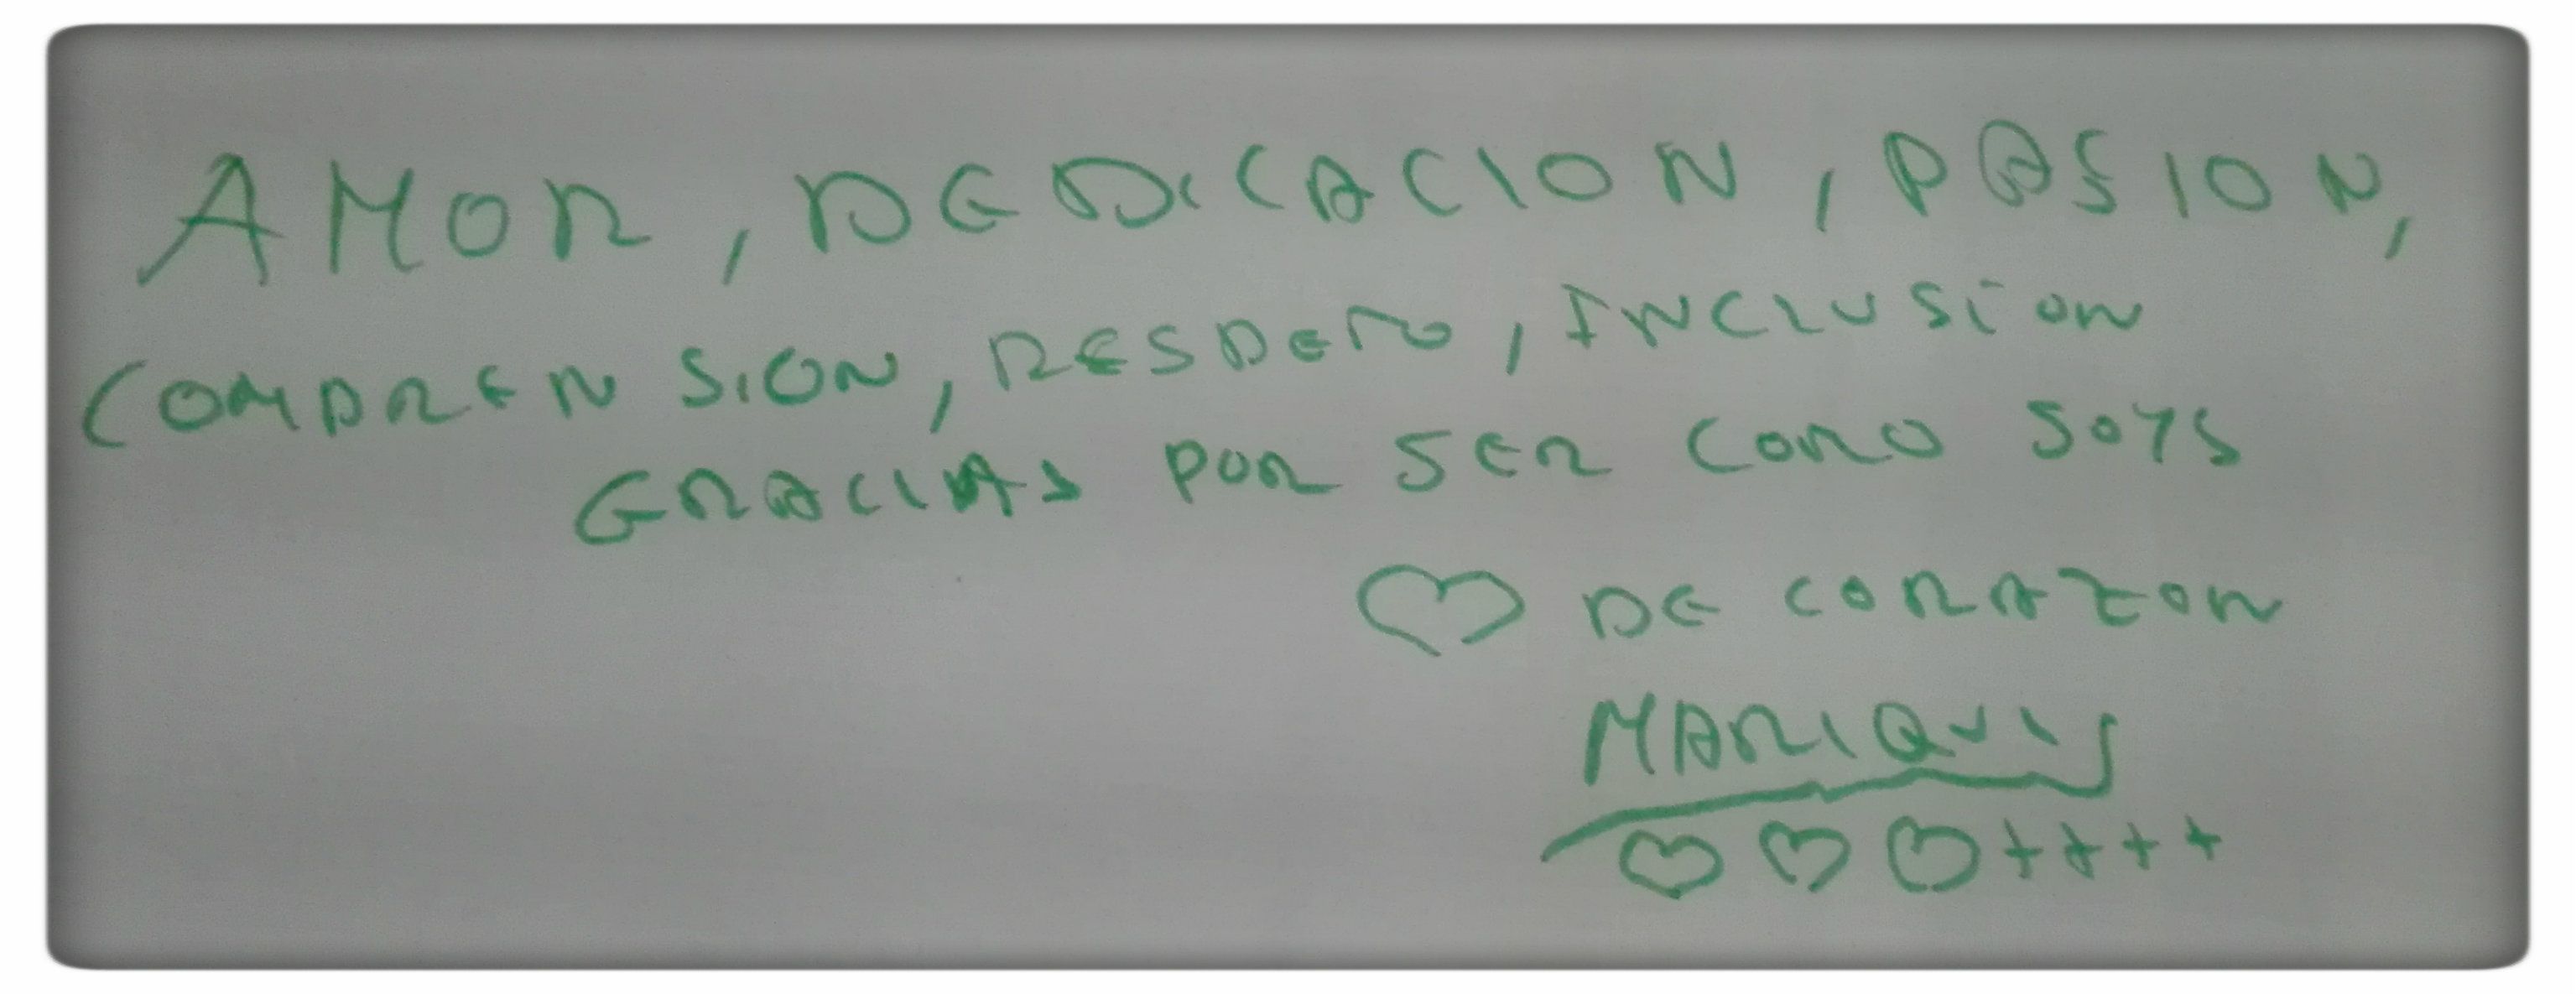 AMOR, DEDICACION, PASION,
COMPRENSION, RESPETO, INCLUSION
GRACIAS POR SER COMO SOYS
♡ DE CORAZON
MARIQUIS
♡ ♡ ♡ + + + +